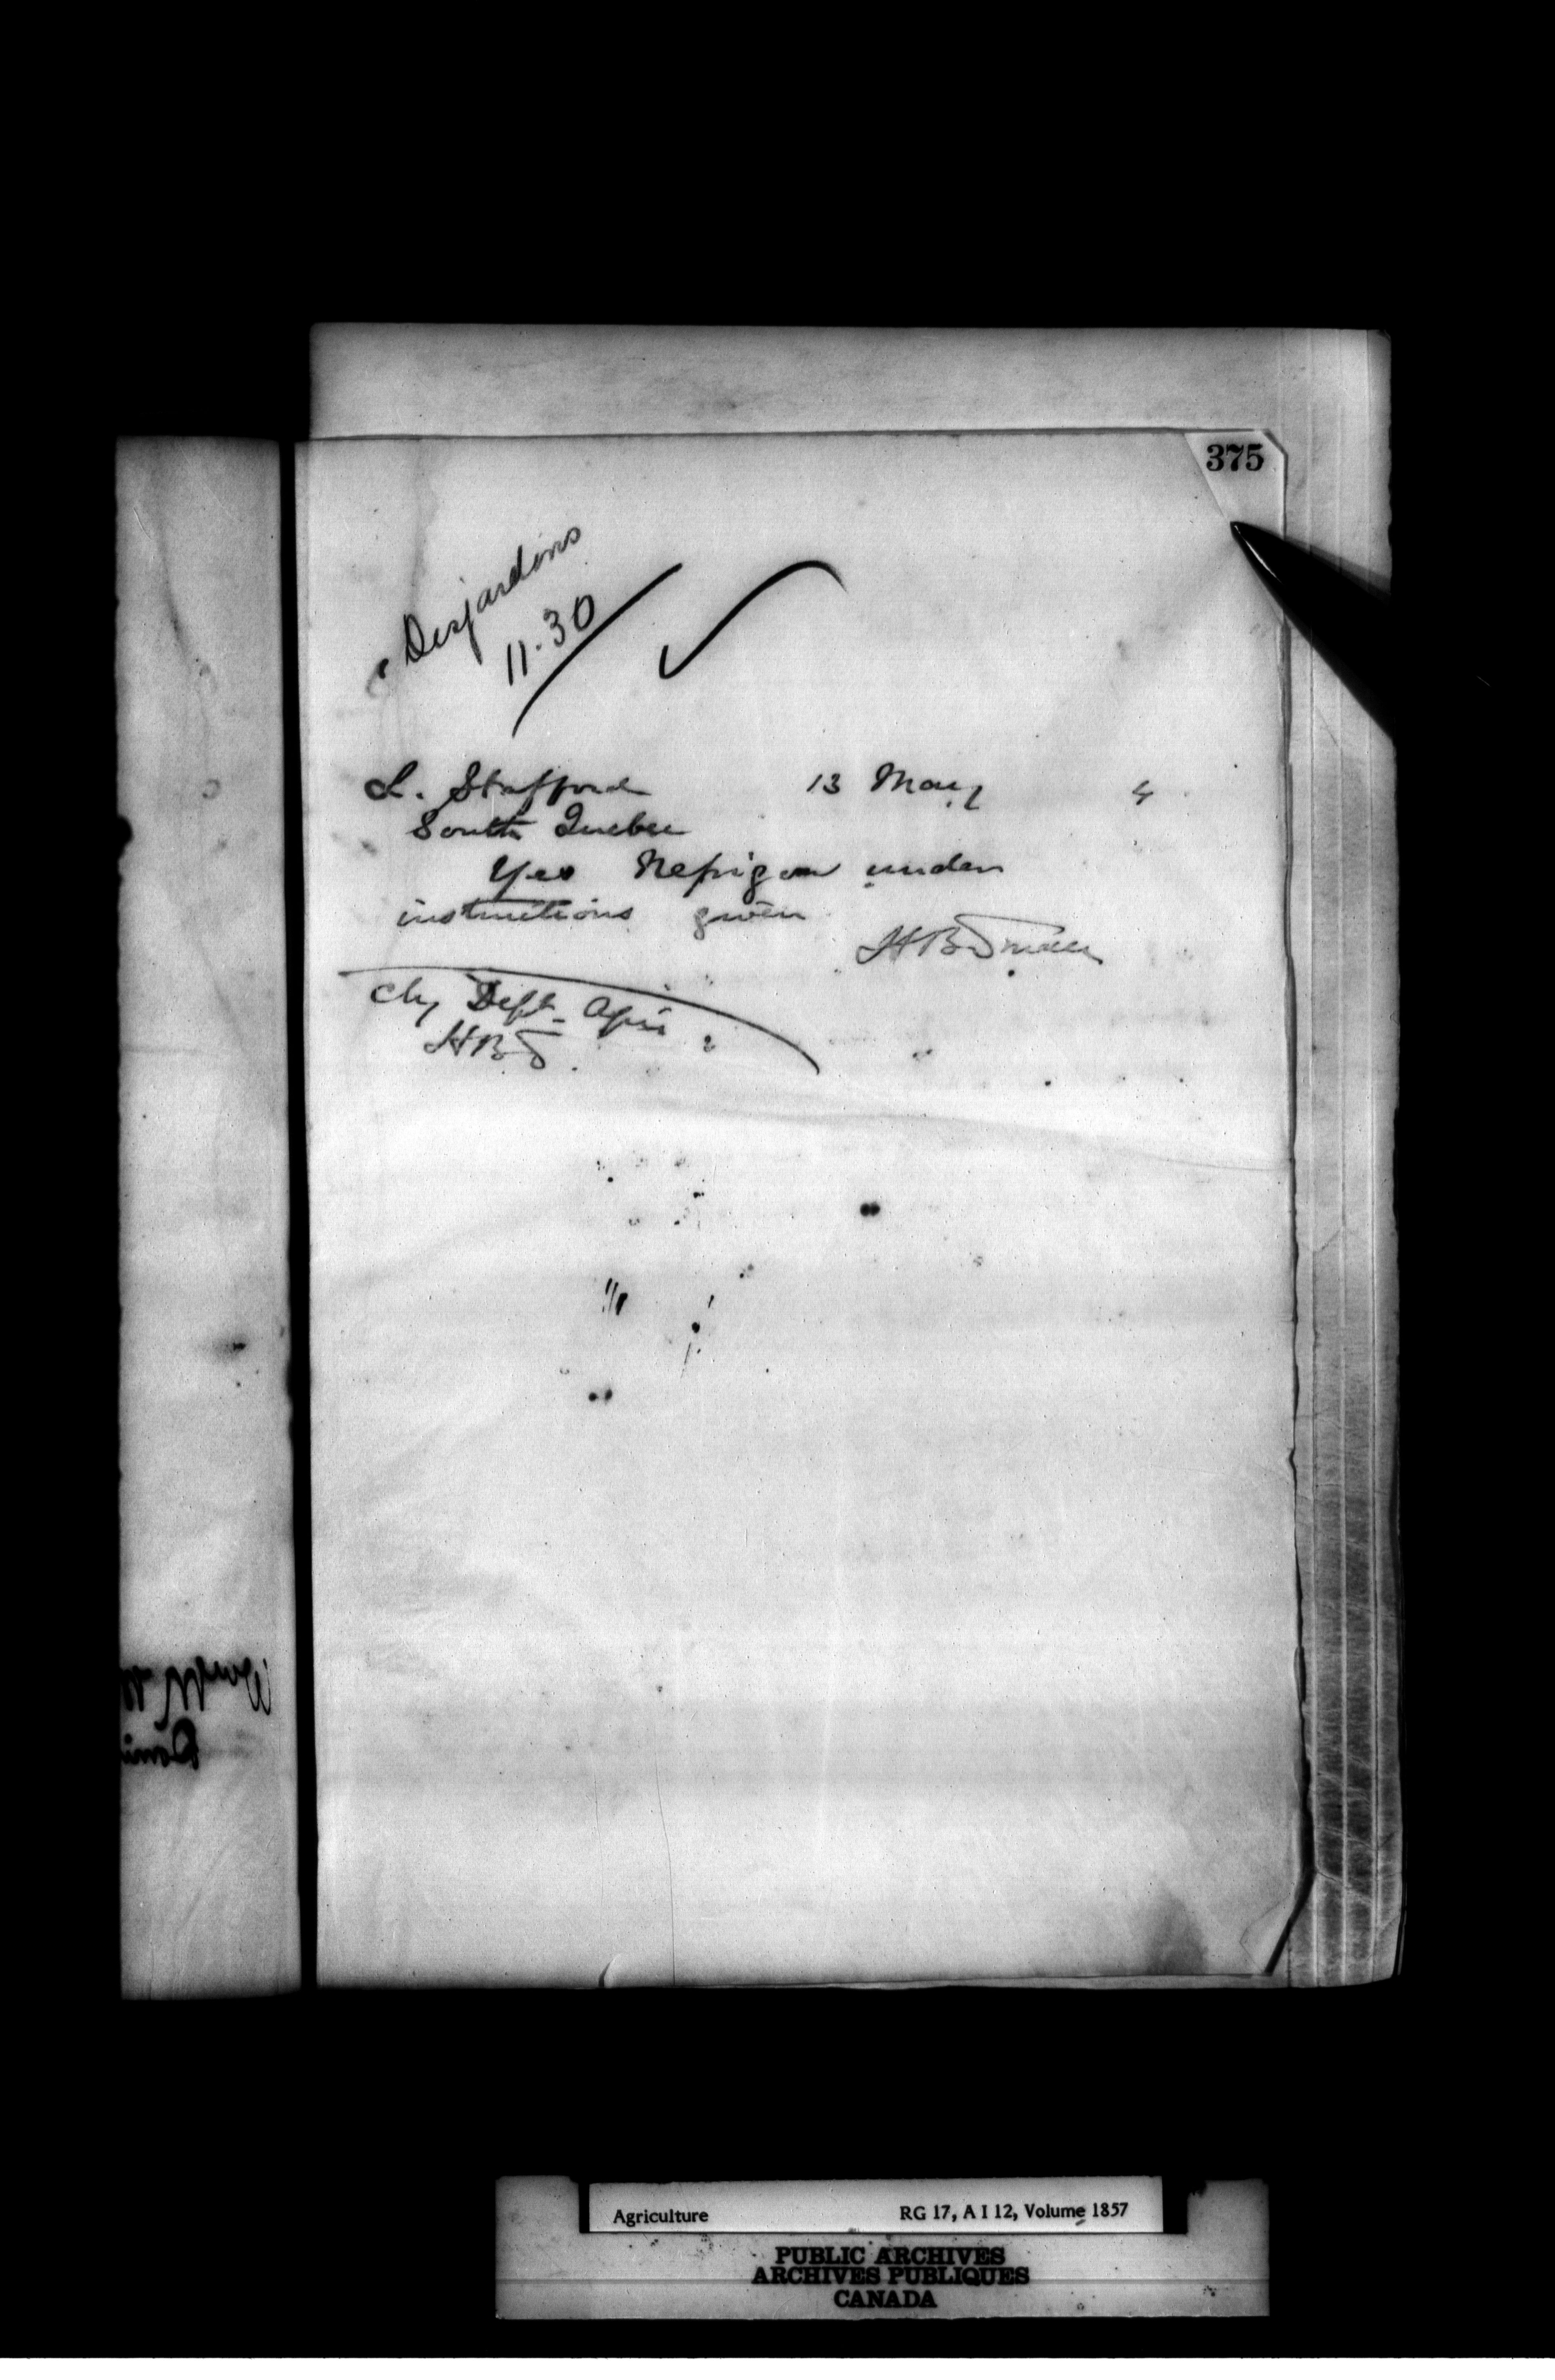 375
Desjardins
11.30
L. Stafford 13 May 4
South Quebec
Yes Nepigon under
instructions given
HB Small
Chg Dept. Agri
HBS
Agriculture RG 17, A I 12, Volume 1857
PUBLIC ARCHIVES
ARCHIVES PUBLIQUES
CANADA